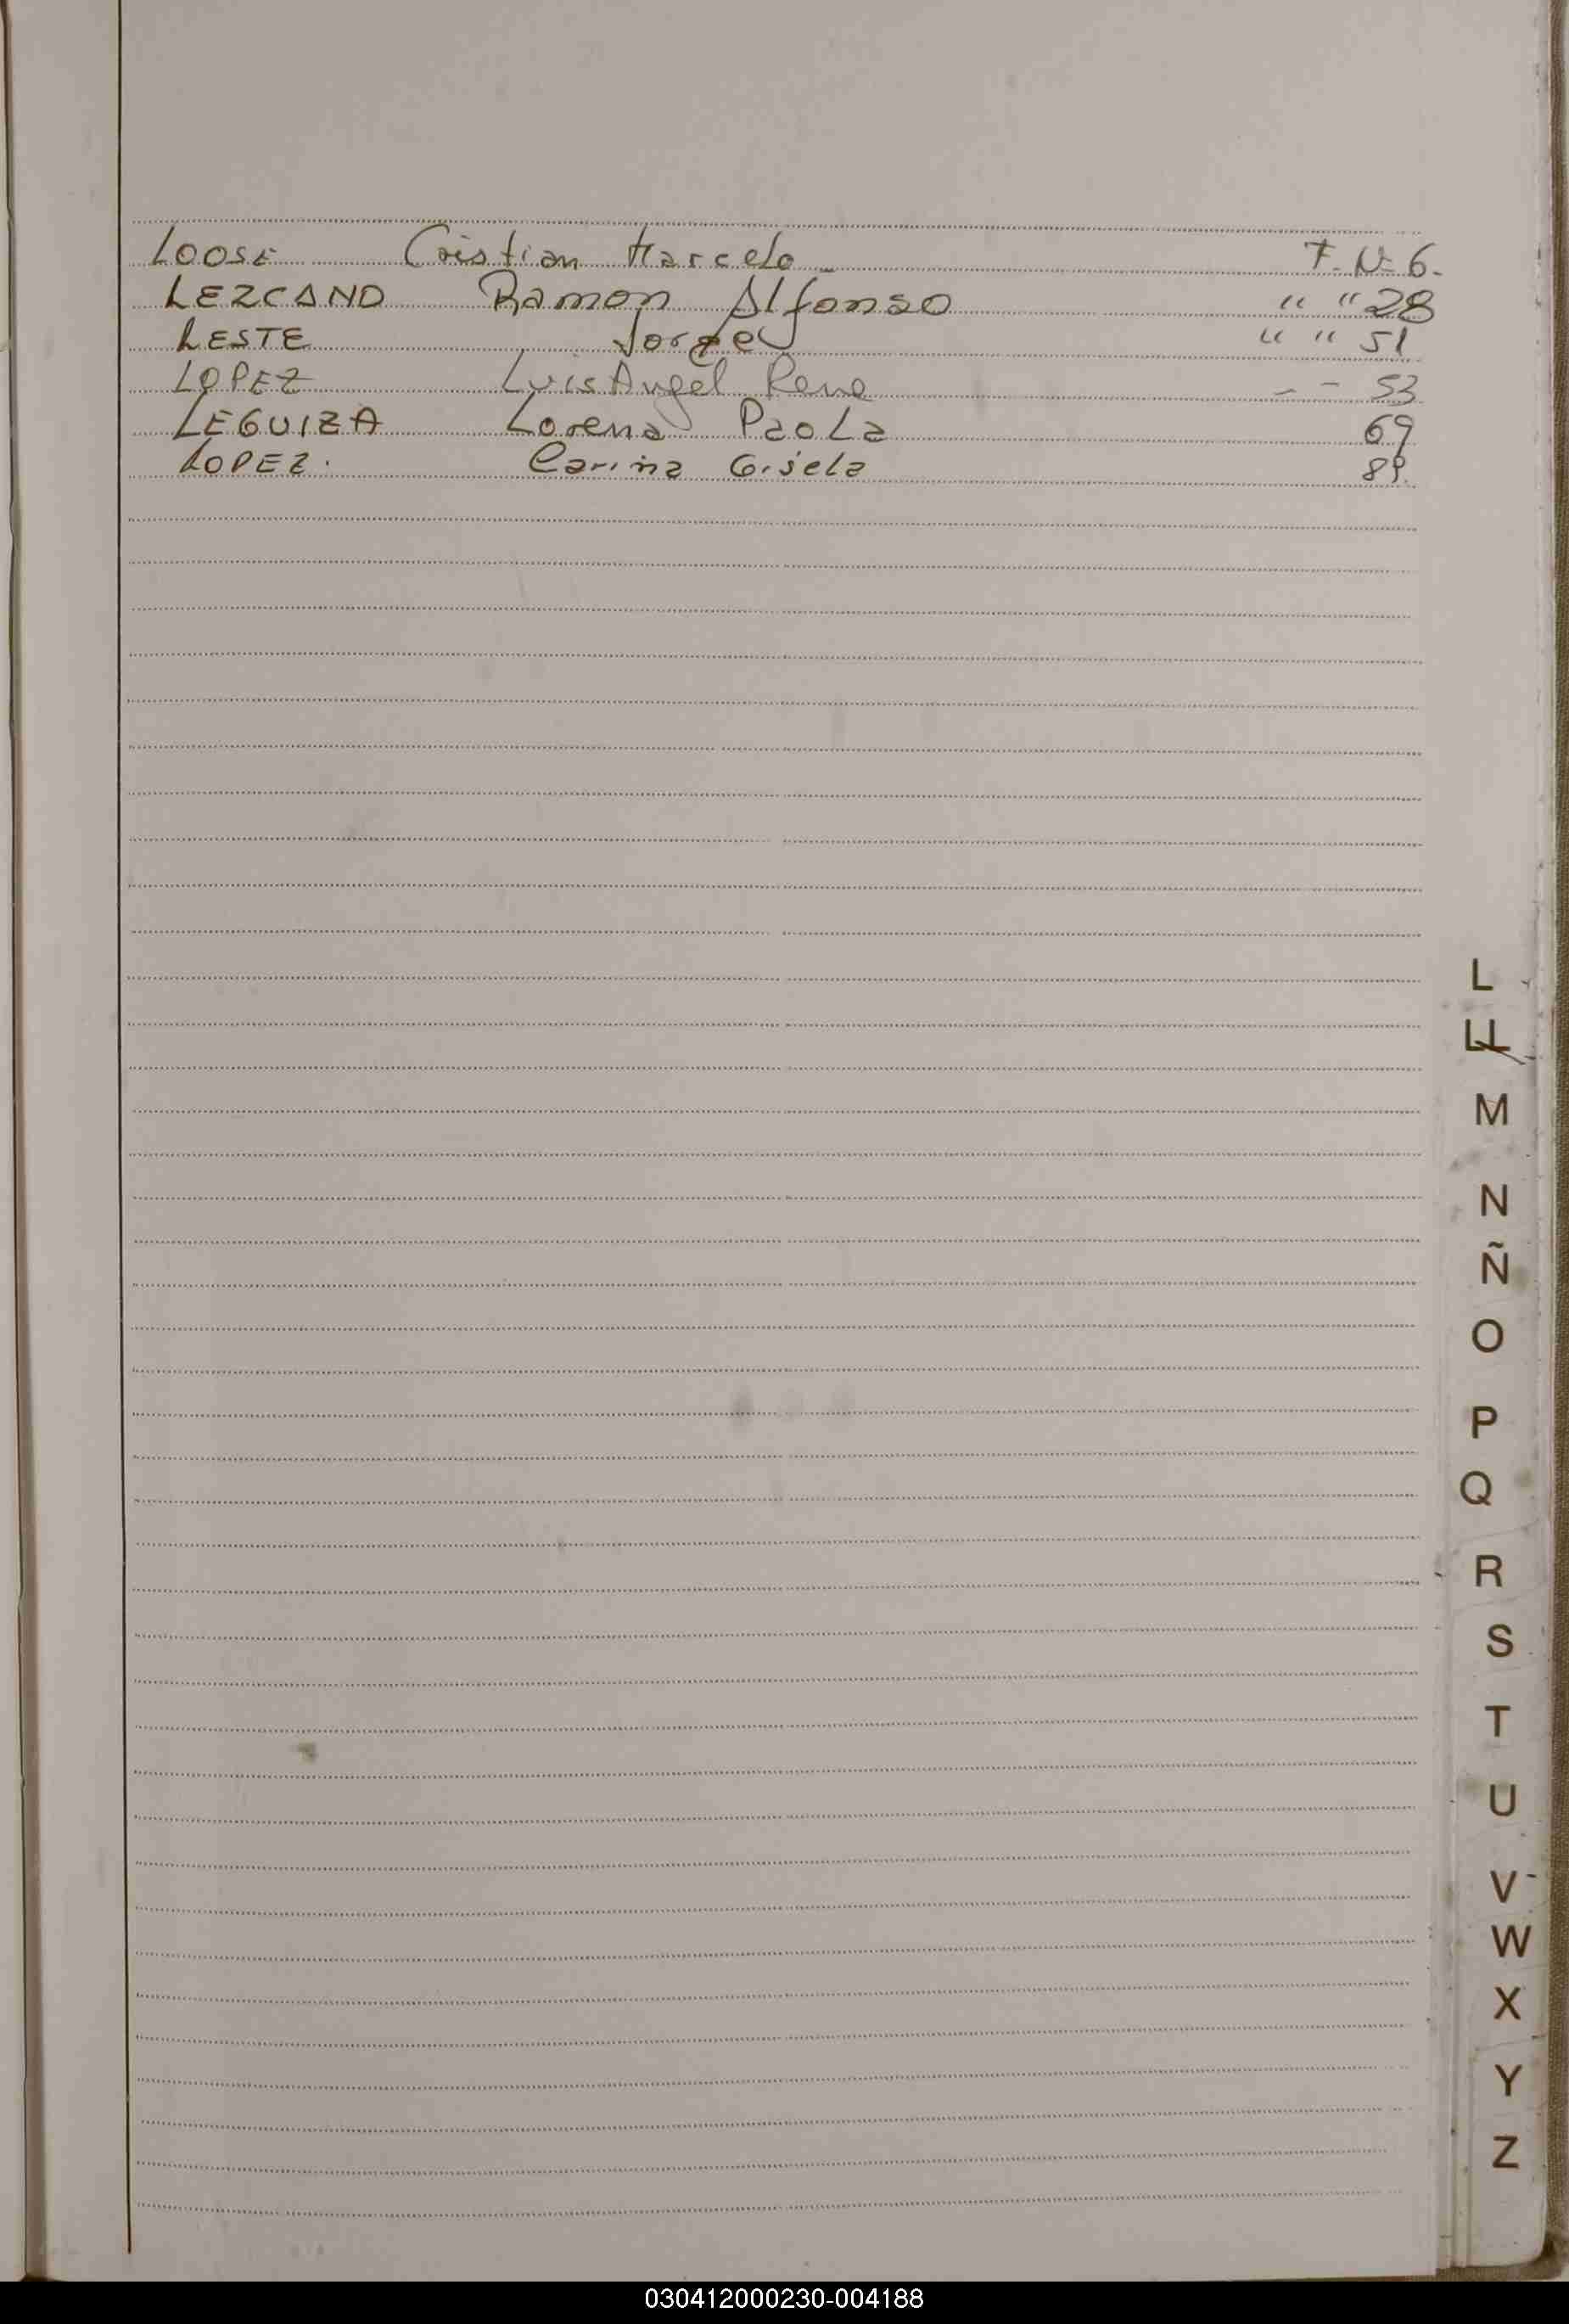 LOOSE Cristian Marcelo F. Nº 6.
LEZCANO Ramon Alfonso " " 28
LESTE Jorge " " 51
LOPEZ Luis Angel Rene - - 53
LEGUIZA Lorena Paola 69
LOPEZ. Carina Gisela 89.
L
LL
M
N
Ñ
O
P
Q
R
S
T
U
V
W
X
Y
Z
030412000230-004188